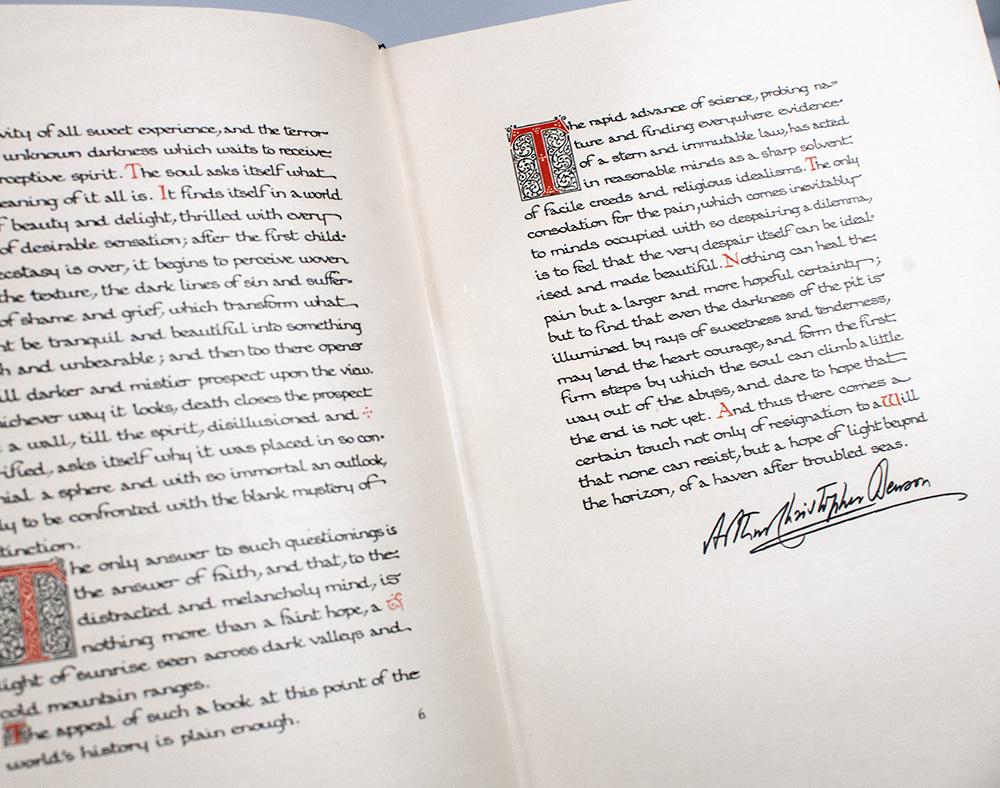 vity of all sweet experience, and the terror
unknown darkness which waits to receive
rceptive spirit. The soul asks itself what
eaning of it all is. It finds itself in a world
f beauty and delight, thrilled with every
of desirable sensation; after the first child-
ecstasy is over, it begins to perceive woven
the texture, the dark lines of sin and suffer-
of shame and grief, which transform what
ht be tranquil and beautiful into something
h and unbearable; and then too there opens
ill darker and mistier prospect upon the view.
hichever way it looks, death closes the prospect
a wall, till the spirit, disillusioned and
rified, asks itself why it was placed in so con-
nial a sphere and with so immortal an outlook,
ly to be confronted with the blank mystery of
tinction.
The only answer to such questionings is
the answer of faith, and that, to the
distracted and melancholy mind, is
nothing more than a faint hope, a
light of sunrise seen across dark valleys and
cold mountain ranges.
The appeal of such a book at this point of the
world's history is plain enough.
6
The rapid advance of science, probing na=
ture and finding everywhere evidence
of a stern and immutable law, has acted
in reasonable minds as a sharp solvent
of facile creeds and religious idealisms. The only
consolation for the pain, which comes inevitably
to minds occupied with so despairing a dilemma,
is to feel that the very despair itself can be ideal-
-ised and made beautiful. Nothing can heal the
pain but a larger and more hopeful certainty;
but to find that even the darkness of the pit is
illumined by rays of sweetness and tenderness,
may lend the heart courage, and form the first
firm steps by which the soul can climb a little
way out of the abyss, and dare to hope that
the end is not yet. And thus there comes a
certain touch not only of resignation to a Will
that none can resist, but a hope of light beyond
the horizon, of a haven after troubled seas.
Arthur Christopher Benson